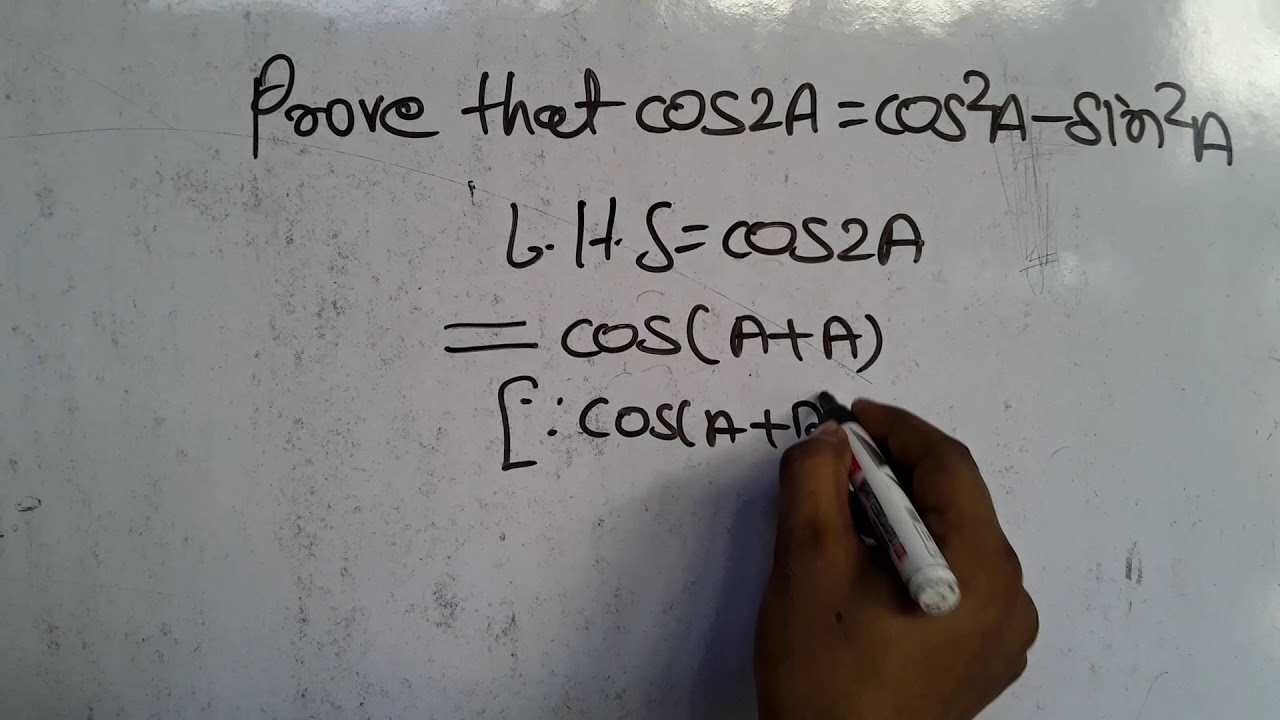 Prove that cos2A=cos²A-sin²A
L.H.S=cos2A
=cos(A+A)
[∵cos(A+B